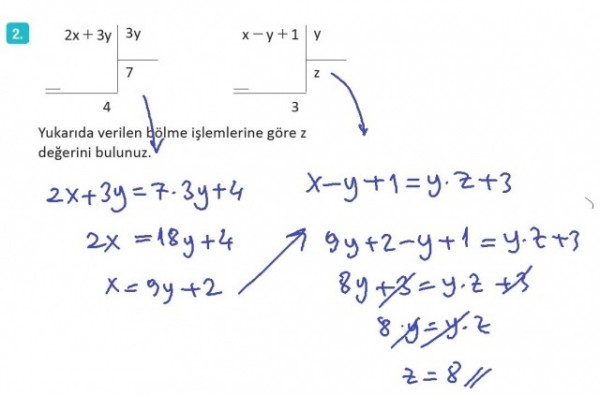 2.
2x + 3y | 3y
7
4
x - y + 1 | y
z
3
Yukarıda verilen bölme işlemlerine göre z
değerini bulunuz.
2x+3y=7·3y+4
2x =18y+4
x=9y+2
x-y+1=y·z+3
9y+2-y+1=y·z+3
8y+3=y·z+3
8·y=y·z
z=8//